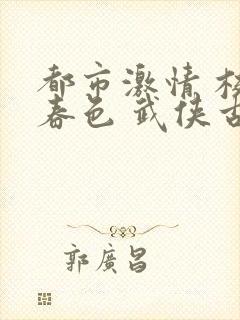 都市激情 校
春色 武侠古
郭廣昌